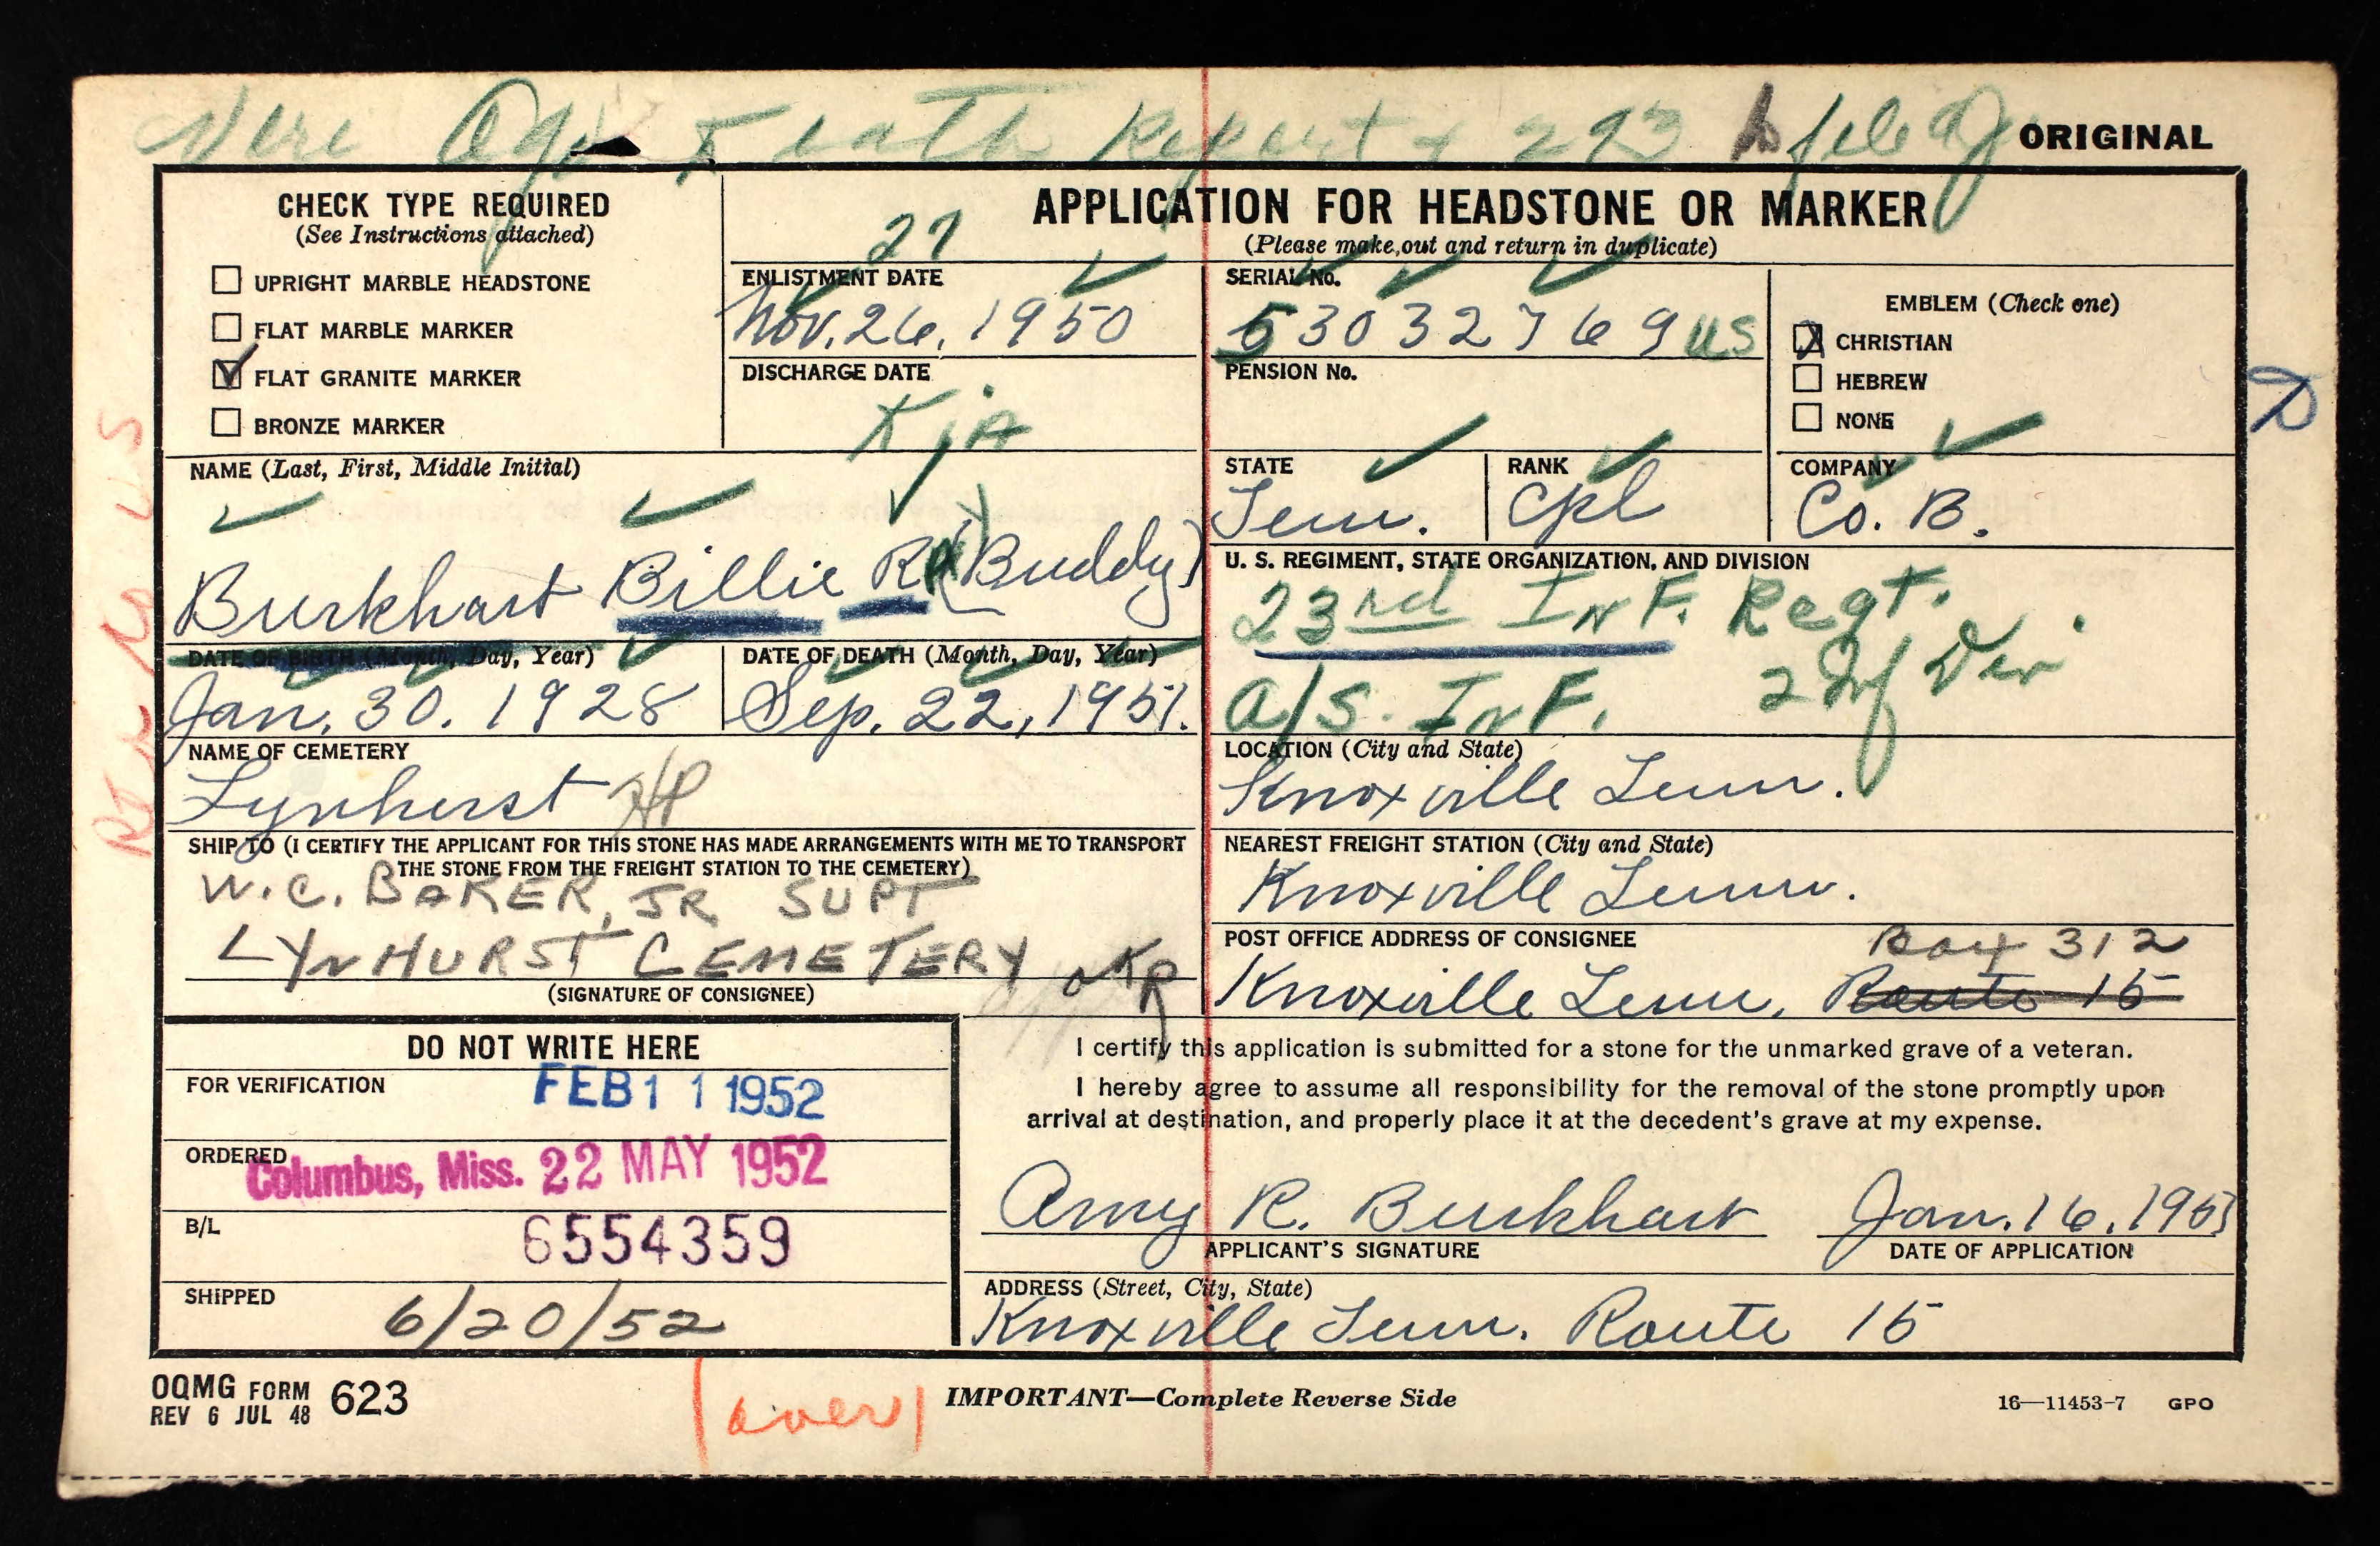 Death Report & 293
ORIGINAL
CHECK TYPE REQUIRED
(See Instructions attached)
UPRIGHT MARBLE HEADSTONE
FLAT MARBLE MARKER
FLAT GRANITE MARKER
BRONZE MARKER
APPLICATION FOR HEADSTONE OR MARKER
(Please make out and return in duplicate)
27
ENLISTMENT DATE
Nov. 26, 1950
DISCHARGE DATE
KIA
SERIAL No.
53032769 US
PENSION No.
EMBLEM (Check one)
CHRISTIAN
HEBREW
NONE
D
NAME (Last, First, Middle Initial)
Burkhart Billie R (Buddy)
STATE
Tenn.
RANK
Cpl
COMPANY
Co. B.
U. S. REGIMENT, STATE ORGANIZATION, AND DIVISION
23rd INF. Regt.
2 Inf Div
A/S. INF.
DATE OF BIRTH (Month, Day, Year)
Jan. 30. 1928
DATE OF DEATH (Month, Day, Year)
Sep. 22, 1951.
NAME OF CEMETERY
Lynhurst
LOCATION (City and State)
Knoxville Tenn.
SHIP TO (I CERTIFY THE APPLICANT FOR THIS STONE HAS MADE ARRANGEMENTS WITH ME TO TRANSPORT
THE STONE FROM THE FREIGHT STATION TO THE CEMETERY)
W. C. BAKER, JR SUPT
LYNHURST CEMETERY
(SIGNATURE OF CONSIGNEE)
NEAREST FREIGHT STATION (City and State)
Knoxville Tenn.
POST OFFICE ADDRESS OF CONSIGNEE
Box 312
Knoxville Tenn, Route 15
DO NOT WRITE HERE
FOR VERIFICATION
FEB 1 1 1952
ORDERED
Columbus, Miss. 22 MAY 1952
B/L
6554359
SHIPPED
6/20/52
I certify this application is submitted for a stone for the unmarked grave of a veteran.
I hereby agree to assume all responsibility for the removal of the stone promptly upon
arrival at destination, and properly place it at the decedent's grave at my expense.
Amy R. Burkhart
APPLICANT'S SIGNATURE
Jan. 16, 195
DATE OF APPLICATION
ADDRESS (Street, City, State)
Knoxville Tenn. Route 15
OQMG FORM 623
REV 6 JUL 48
(over)
IMPORTANT—Complete Reverse Side
16—11453-7 GPO